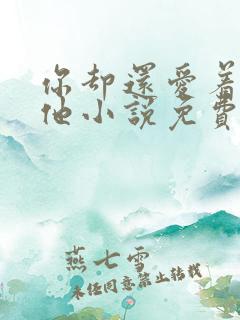 你却還愛着
他小說免費
燕七雪
未经同意禁止转载